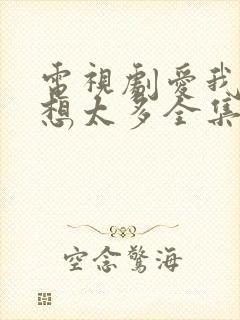 電視劇愛我
想太多全集
空念驚海